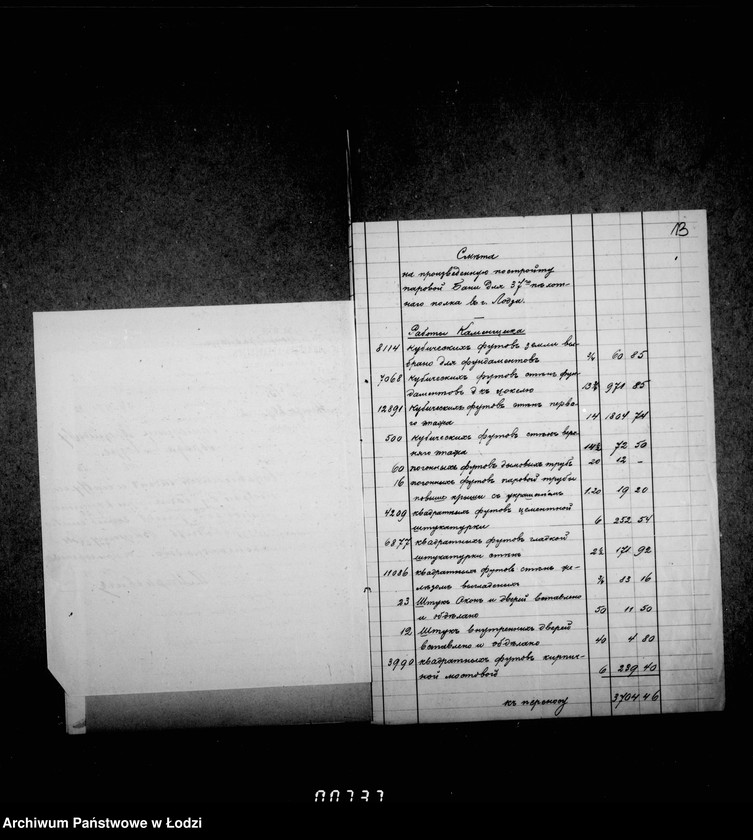 13
Смѣта
на произведенную постройку
паровой Бани для 37го пѣхот-
наго полка въ г. Лодзи.
Работы Каменщика
8114 кубическихъ футовъ земли вы-
брано для фундаментовъ ¾ 60 85
7068 кубическихъ футовъ стѣнъ фун-
даментовъ д къ цоколю 13¾ 971 85
12891 кубическихъ футовъ стѣнъ перва-
го этажа 14 1804 74
500 кубическихъ футовъ стѣнъ верх-
няго этажа 14½ 72 50
60 погонныхъ футовъ дымовыхъ трубъ 20 12 –
16 погонныхъ футовъ паровой трубы
повыше крыши съ украшеніемъ 1.20 19 20
4209 квадратныхъ футовъ цементной
штукатурки 6 252 54
6877 квадратныхъ футовъ гладкой
штукатурки стѣнъ 2½ 171 92
11086 квадратныхъ футовъ стѣнъ
¾ 83 16
23 Штукъ Оконъ и дверей вставлено
и обдѣлано 50 11 50
12 Штукъ внутренныхъ дверей
вставлено и обдѣлано 40 4 80
3990 квадратныхъ футовъ кирпич-
ной мостовой 6 239 40
къ переносу 3704 46
00737
Archiwum Państwowe w Łodzi